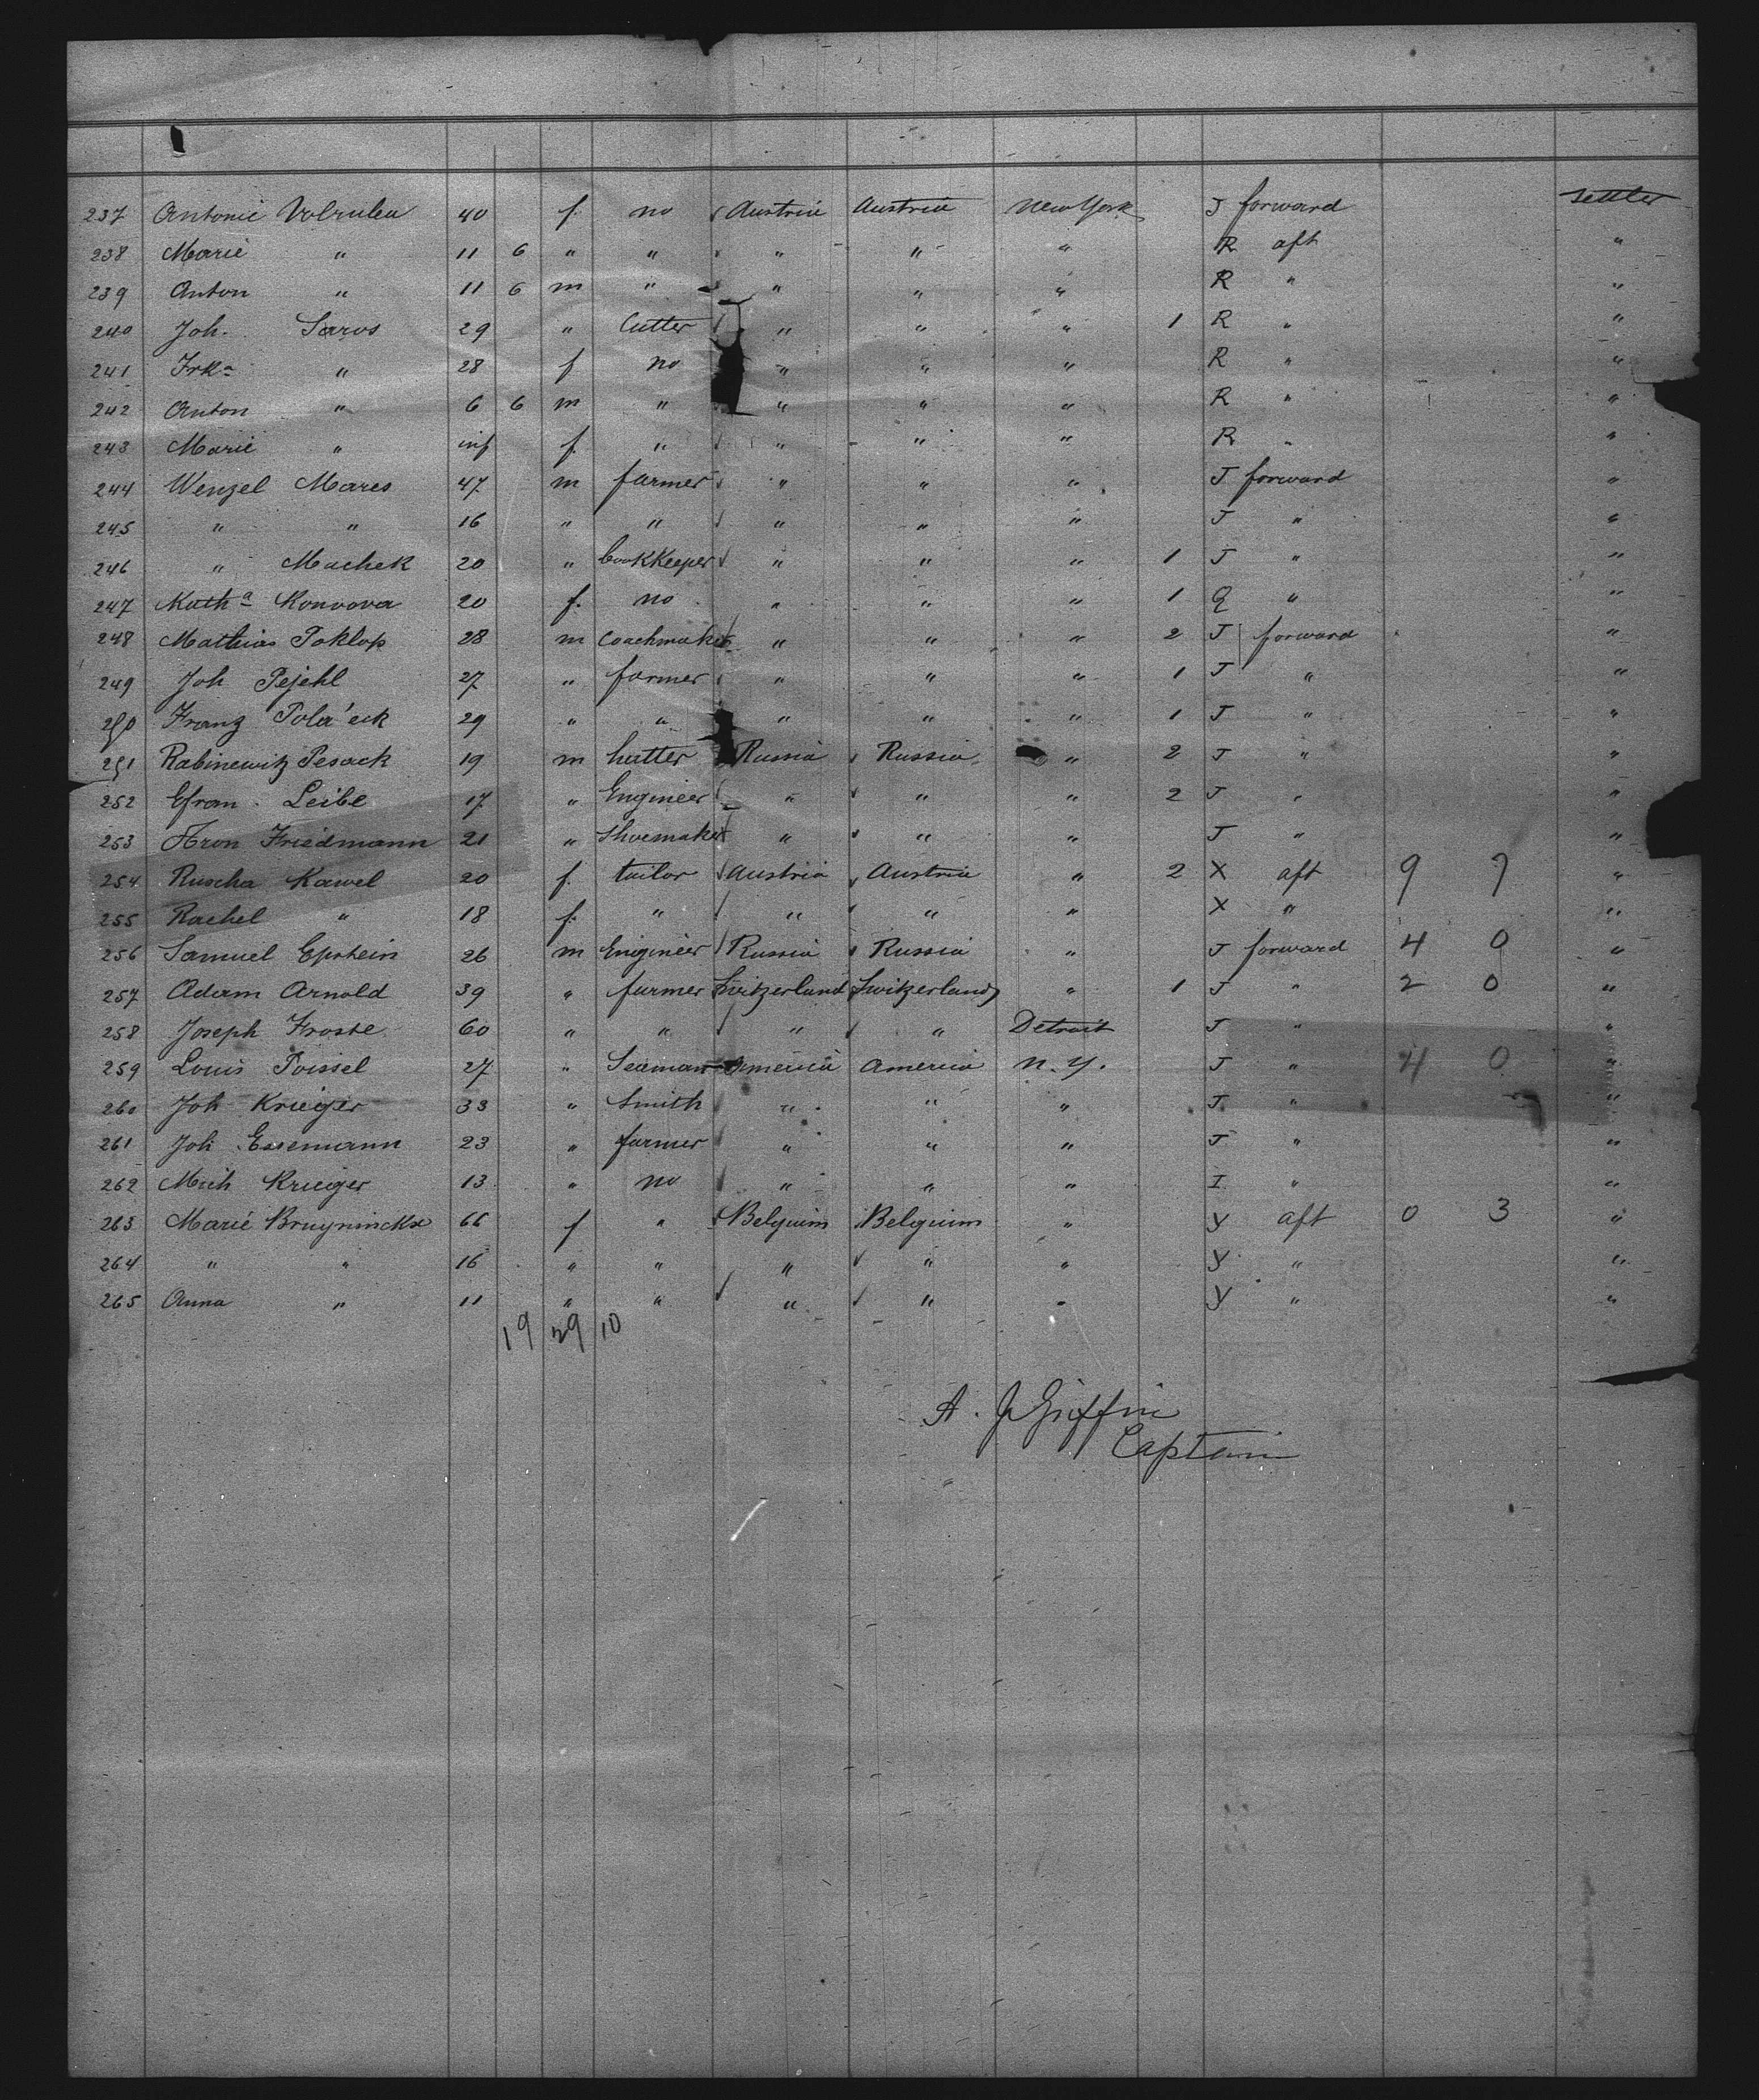 237 Antonie Votruba 40 f. no Austria Austria New York J forward settler
238 Marie " 11 6 " " " " " R aft "
239 Anton " 11 6 m " " " " R " "
240 Joh. Saros 29 " Cutter " " " 1 R " "
241 Frka " 28 f no " " " R " "
242 Anton " 6 6 m " " " " R " "
243 Marie " inf f. " " " " R " "
244 Wenzel Mares 47 m farmer " " " J forward "
245 " " 16 " " " " " J " "
246 " Machek 20 " bookkeeper " " " 1 J " "
247 Katha Konvova 20 f. no " " " 1 Q " "
248 Mathias Poklop 28 m Coachmaker " " " 2 J forward "
249 Joh Pejchl 27 " farmer " " " 1 J " "
250 Franz Polácek 29 " " " " " 1 J " "
251 Rabinewitz Pesack 19 m hatter Russia Russia " 2 J " "
252 Efram Leibe 17 " Engineer " " " 2 J " "
253 Aron Friedmann 21 " Shoemaker " " " J " "
254 Ruscha Kawel 20 f. tailor Austria Austria " 2 X aft 9 7 "
255 Rachel " 18 f. " " " " X " "
256 Samuel Epstein 26 m Engineer Russia Russia " J forward 4 0 "
257 Adam Arnold 39 " farmer Switzerland Switzerland " 1 J " 2 0 "
258 Joseph Froste 60 " " " " Detroit J " "
259 Louis Poissel 27 " Seaman America America N.Y. J " 4 0 "
260 Joh Krieger 33 " Smith " " " J " "
261 Joh Essemann 23 " farmer " " " J " "
262 Mich Krieger 13 " no " " " I " "
263 Marie Bruyninckx 66 f " Belguim Belguim " Y aft 0 3 "
264 " " 16 " " " " " Y " "
265 Anna " 11 " " " " " Y " "
19 29 10
A. J Griffin
Captain